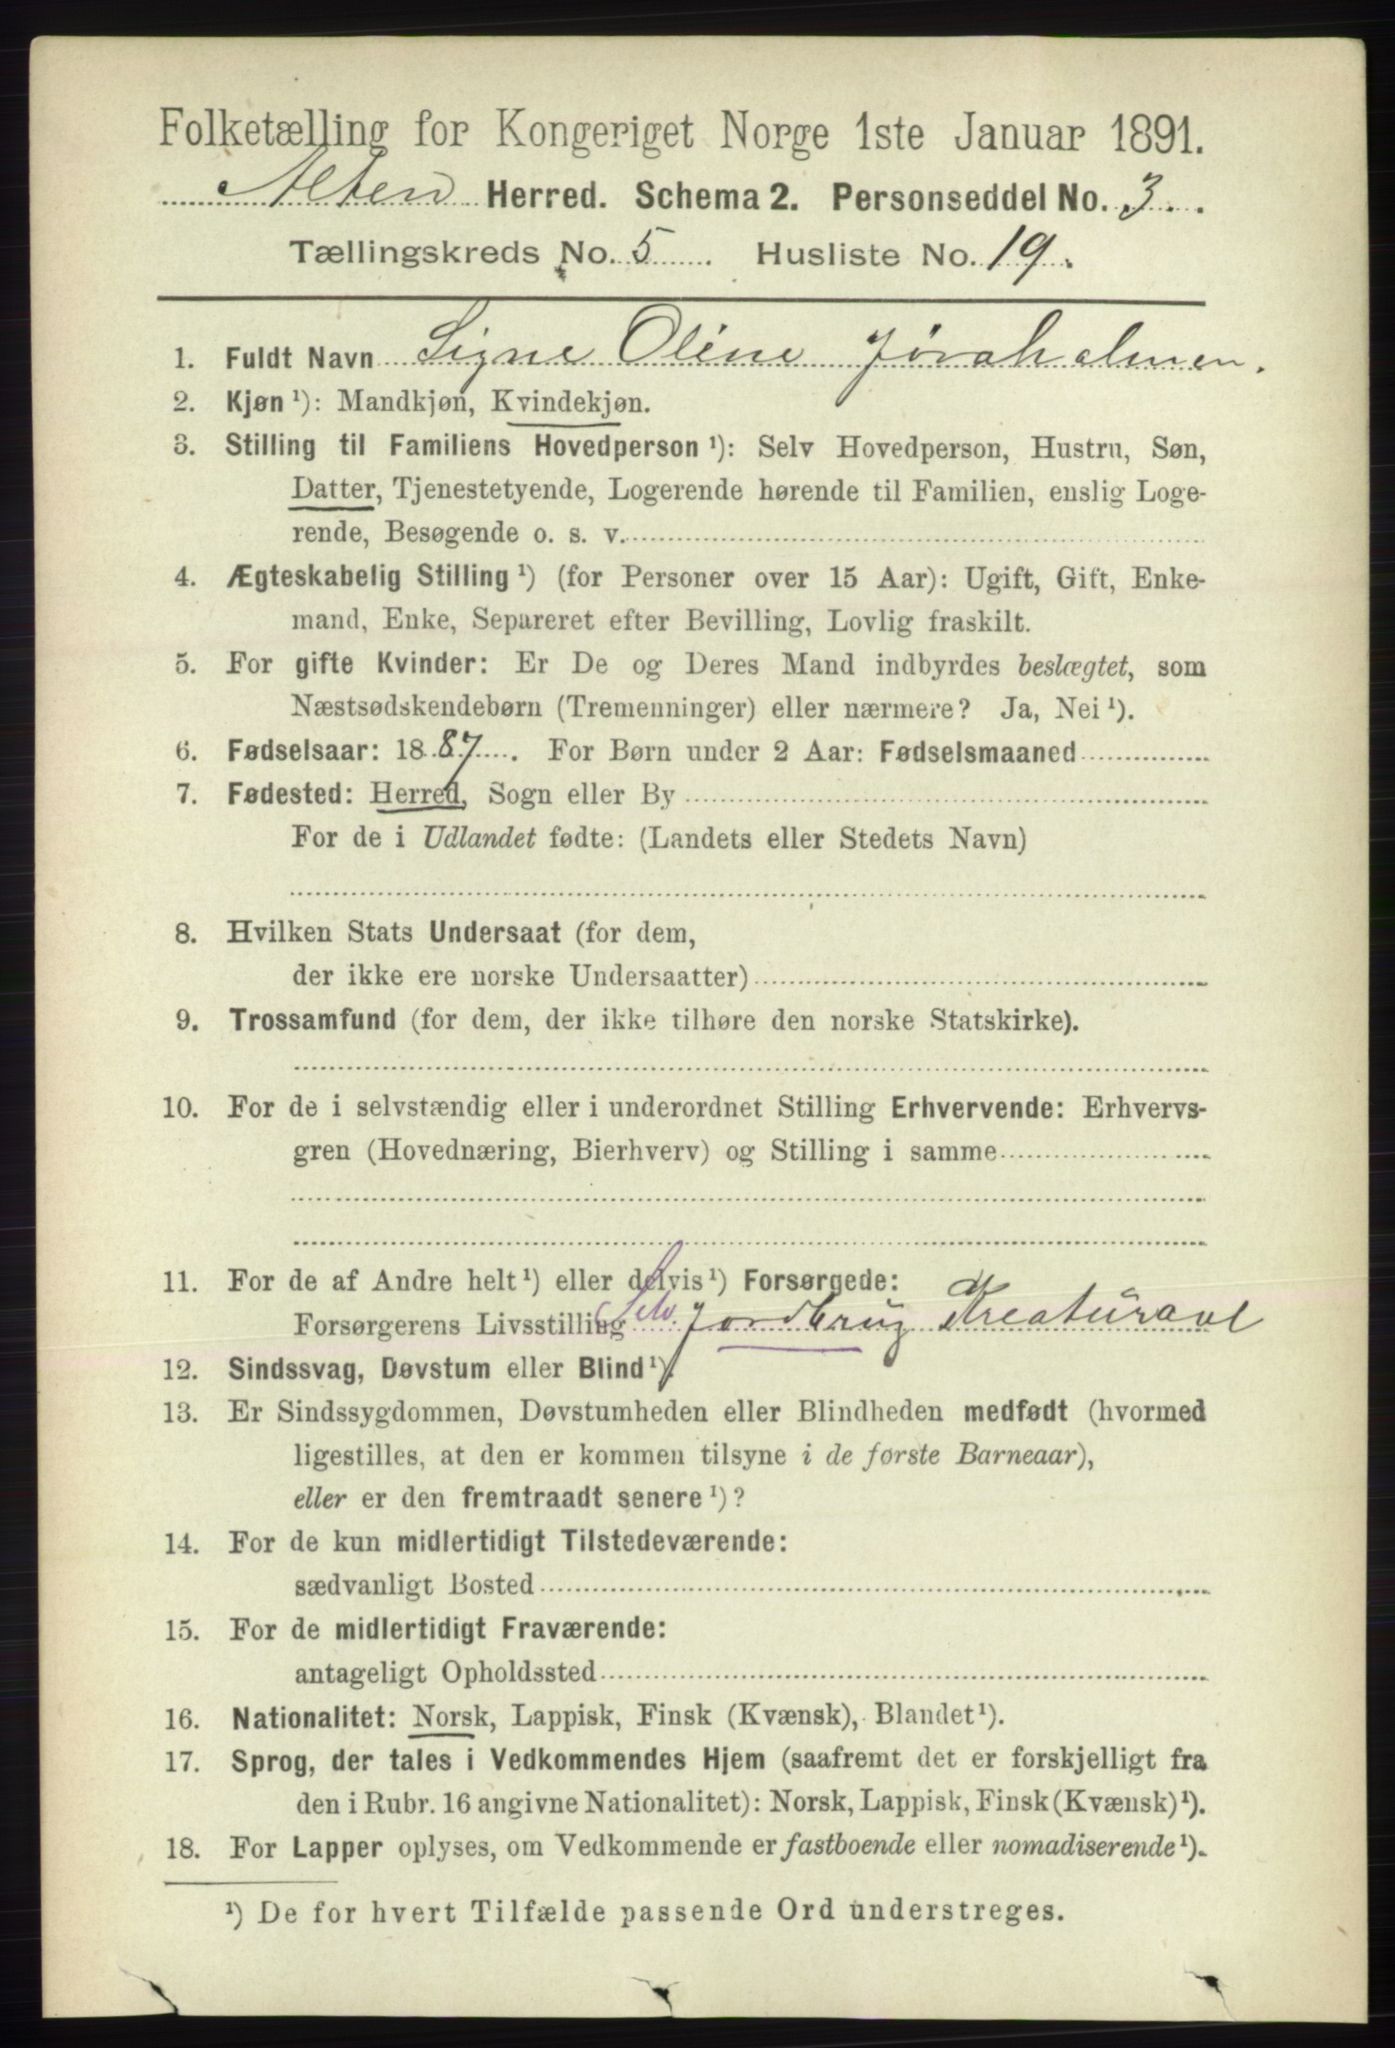 Folketælling for Kongeriget Norge 1ste Januar 1891.
Alten Herred. Schema 2. Personseddel No. 3.
Tællingskreds No. 5 Husliste No. 19.
1. Fuldt Navn Signe Oline Jøraholmen.
2. Kjøn ¹): Mandkjøn, Kvindekjøn.
3. Stilling til Familiens Hovedperson ¹): Selv Hovedperson, Hustru, Søn,
Datter, Tjenestetyende, Logerende hørende til Familien, enslig Loge-
rende, Besøgende o. s. v.
4. Ægteskabelig Stilling ¹) (for Personer over 15 Aar): Ugift, Gift, Enke-
mand, Enke, Separeret efter Bevilling, Lovlig fraskilt.
5. For gifte Kvinder: Er De og Deres Mand indbyrdes beslægtet, som
Næstsødskendebørn (Tremenninger) eller nærmere? Ja, Nei ¹).
6. Fødselsaar: 1887. For Børn under 2 Aar: Fødselsmaaned
7. Fødested: Herred, Sogn eller By
For de i Udlandet fødte: (Landets eller Stedets Navn)
8. Hvilken Stats Undersaat (for dem,
der ikke ere norske Undersaatter)
9. Trossamfund (for dem, der ikke tilhøre den norske Statskirke).
10. For de i selvstændig eller i underordnet Stilling Erhvervende: Erhvervs-
gren (Hovednæring, Bierhverv) og Stilling i samme
11. For de af Andre helt ¹) eller delvis ¹) Forsørgede:
Forsørgerens Livsstilling Selv. Jordbrug & Kreaturavl
12. Sindssvag, Døvstum eller Blind ¹).
13. Er Sindssygdommen, Døvstumheden eller Blindheden medfødt (hvormed
ligestilles, at den er kommen tilsyne i de første Barneaar),
eller er den fremtraadt senere ¹)?
14. For de kun midlertidigt Tilstedeværende:
sædvanligt Bosted
15. For de midlertidigt Fraværende:
antageligt Opholdssted
16. Nationalitet: Norsk, Lappisk, Finsk (Kvænsk), Blandet ¹).
17. Sprog, der tales i Vedkommendes Hjem (saafremt det er forskjelligt fra
den i Rubr. 16 angivne Nationalitet): Norsk, Lappisk, Finsk (Kvænsk) ¹).
18. For Lapper oplyses, om Vedkommende er fastboende eller nomadiserende ¹).
¹) De for hvert Tilfælde passende Ord understreges.